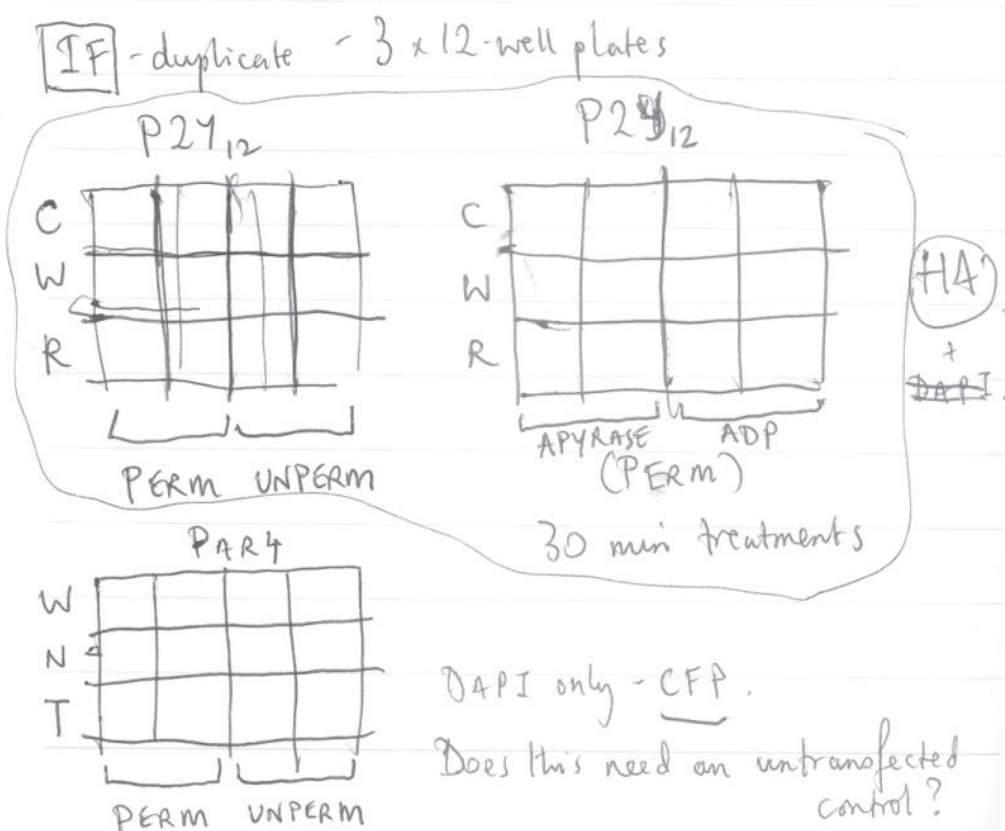 IF - duplicate - 3 x 12-well plates
P2Y12
C
W
R
PERM UNPERM
P2Y12
C
W
R
APYRASE ADP
(PERM)
30 min treatments
HA
+
DAPI.
PAR4
W
N
T
PERM UNPERM
DAPI only - CFP.
Does this need an untransfected
control?